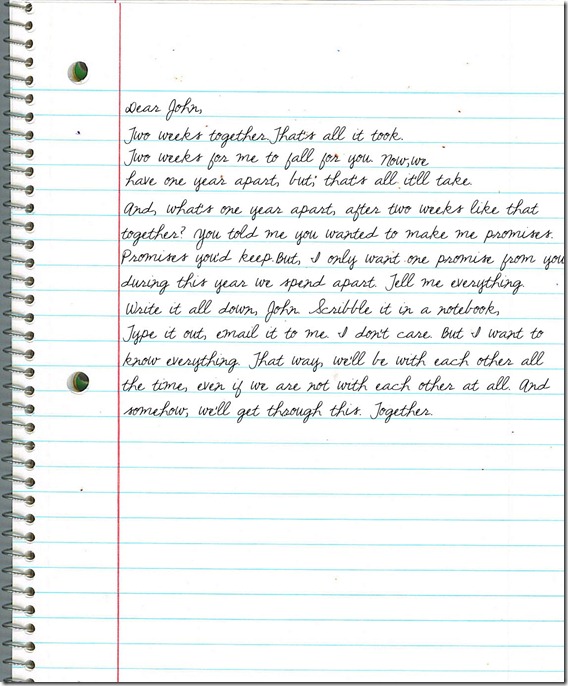 Dear John,
Two weeks together. That's all it took.
Two weeks for me to fall for you. Now, we
have one year apart, but; that's all it'll take.
And, what's one year apart, after two weeks like that
together? You told me you wanted to make me promises.
Promises you'd keep. But, I only want one promise from you
during this year we spend apart. Tell me everything.
Write it all down, John. Scribble it in a notebook,
Type it out, email it to me. I don't care. But I want to
know everything. That way, we'll be with each other all
the time, even if we are not with each other at all. And
somehow, we'll get through this. Together.